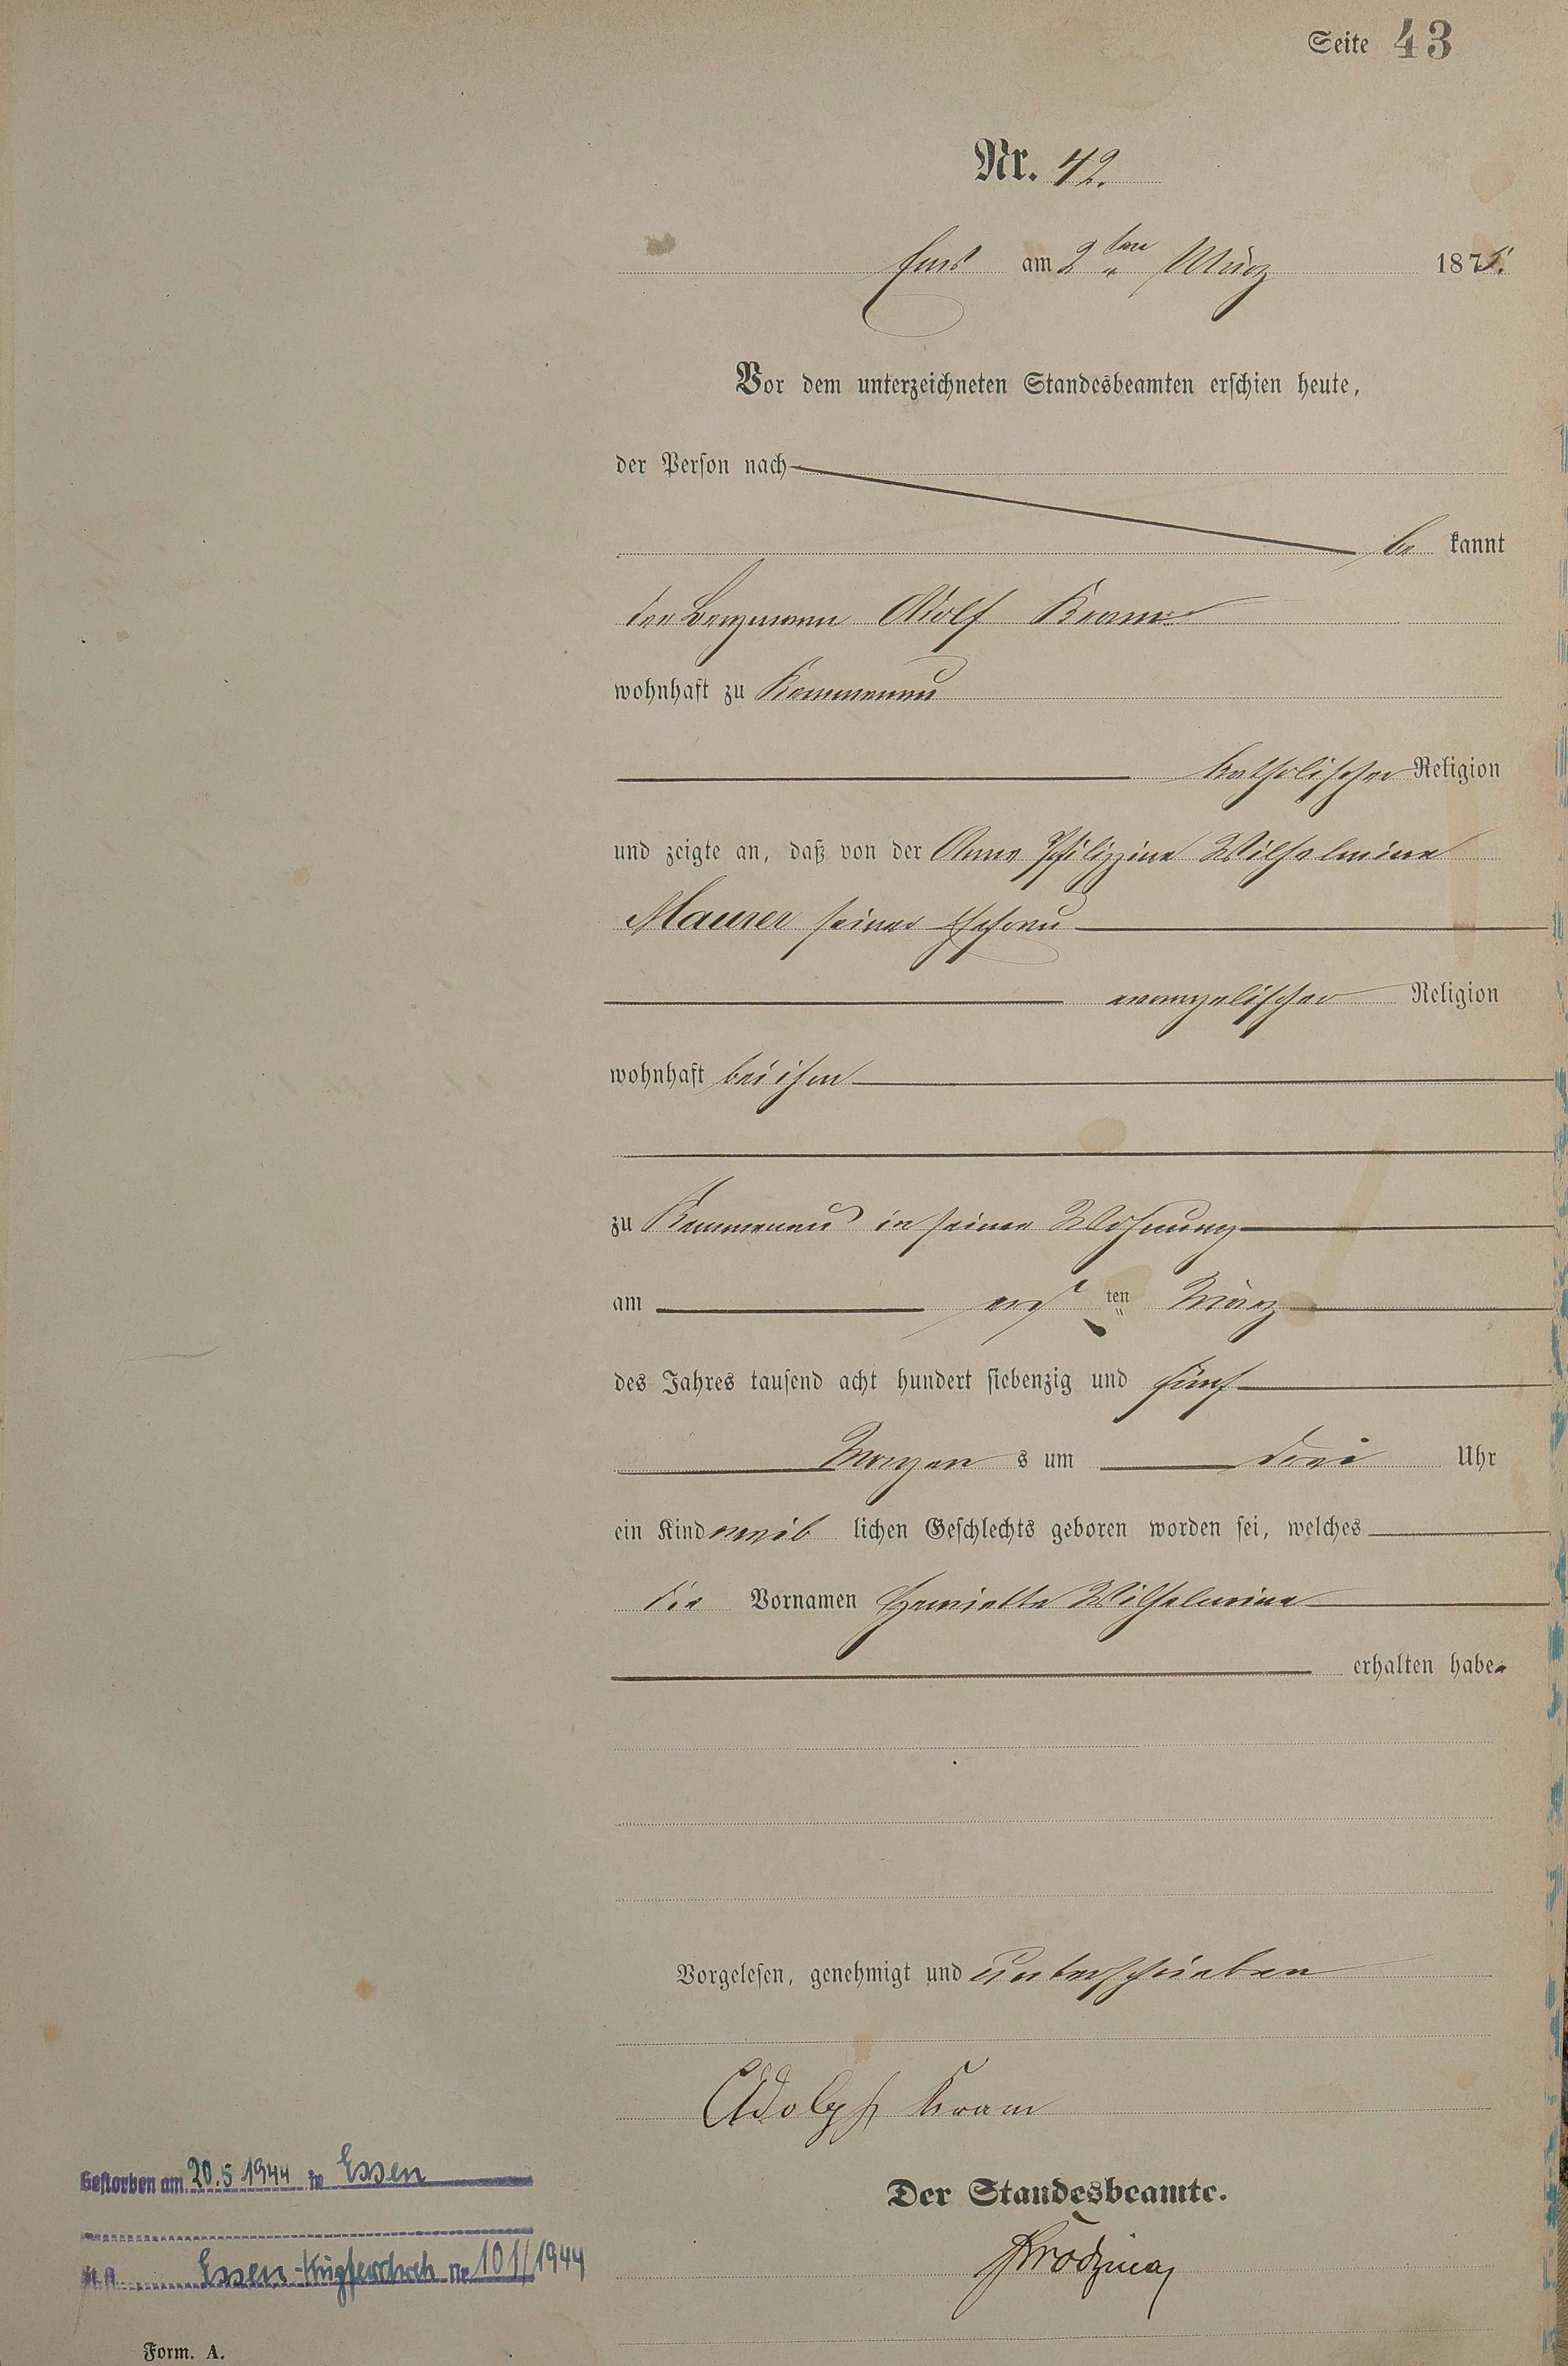 Seite 43
Nr. 42.
Ems am 2ten März 1875.
Vor dem unterzeichneten Standesbeamten erschien heute,
der Person nach
be kannt
der Bergmann Adolf Kram
wohnhaft zu Kemmenau
katholischer Religion
und zeigte an, daß von der Anna Philippine Wilhelmine
Maurer seiner Ehefrau
evangelischer Religion
wohnhaft bei ihm
zu Kemmenau in seiner Wohnung
am ersten März
des Jahres tausend acht hundert siebenzig und fünf
Morgens um drei Uhr
ein Kind weib lichen Geschlechts geboren worden sei, welches
die Vornamen Henriette Wilhelmine
erhalten habe.
Vorgelesen, genehmigt und unterschrieben
Adolph Kram
Gestorben am 20.5 1944 in Essen
Der Standesbeamte.
St. A. Essen- Nr. 101/1944
Form. A.